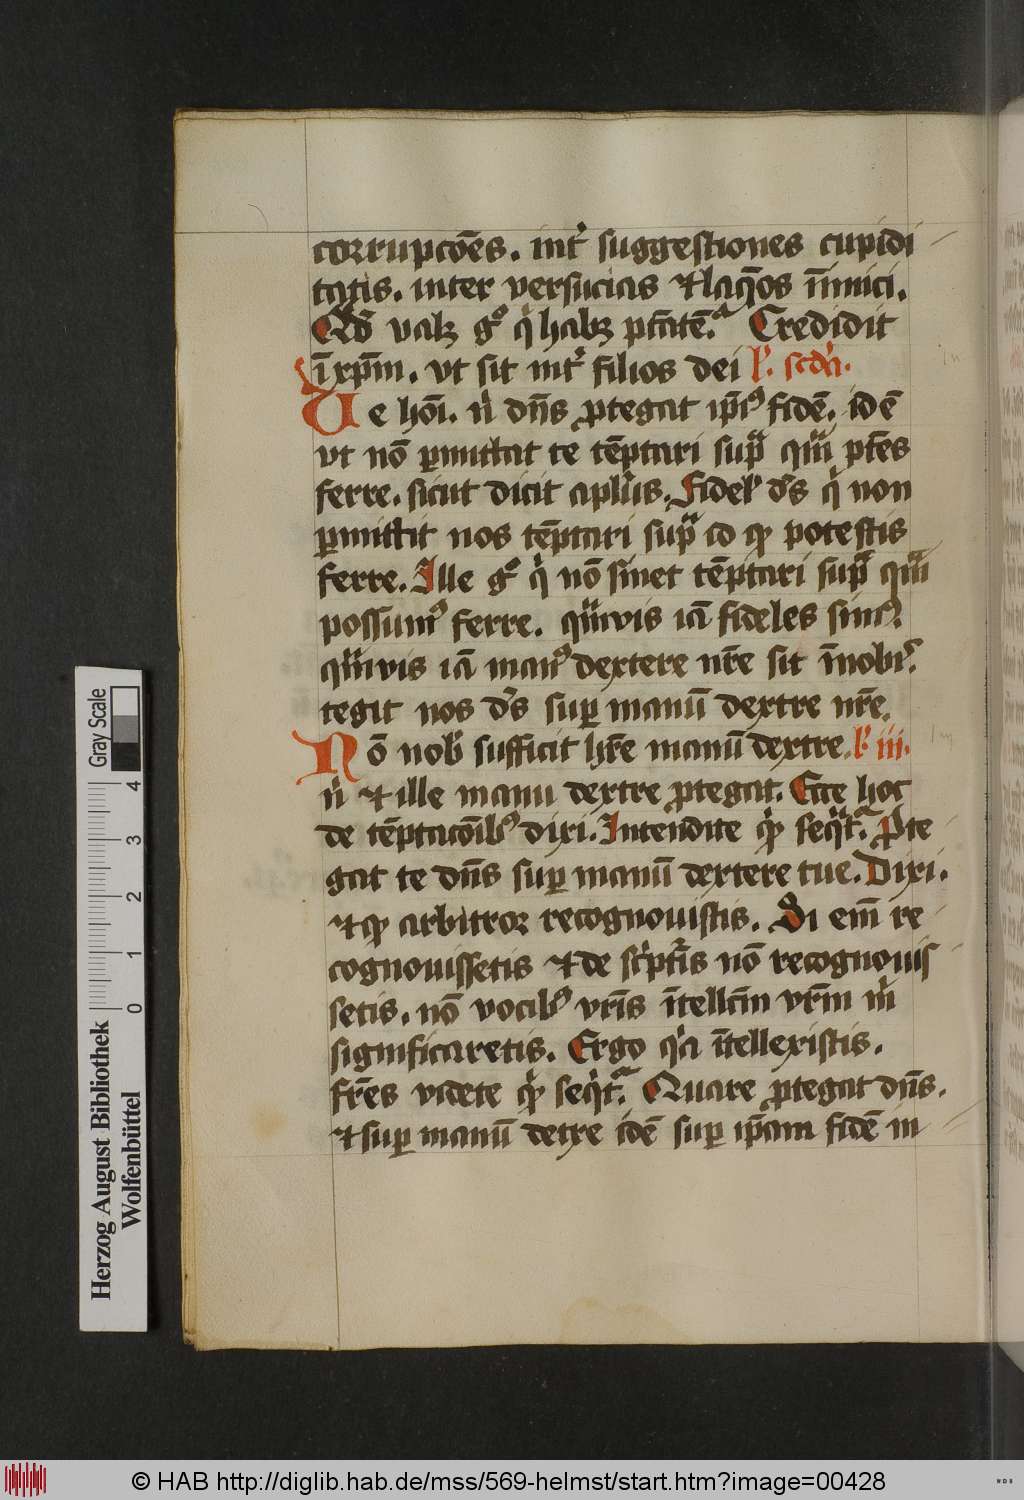 corrupcōēs. int͛ suggestiones cupidi
tatis. inter versucias ⁊ laq̄os īimici.
Qd valꝫ gͦ qͥ habꝫ ptātēᷓ. Credidit
ī xp̄m. vt sit int͛ filios dei lͦ. scd̄a.
Ve hōi. n̄ dn̄s ꝓtegat ip̄iꝰ fidē. idē
vt nō ꝑmittat te tēptari supᷓ qᷓm ptēs
ferre. sicut dicit apl̄us. Fidel̛ ds̄ qͥ non
ꝑmittit nos tēptari supᷓ id qp potestis
ferre. Ille gͦ qͥ nō sinet tēptari supᷓ qᷓm
possumꝰ ferre. qᷓmvis iā fideles simꝰ.
qᷓmvis iā manꝰ dextere nr̄e sit ī nobis.
tegit nos ds̄ suꝑ manū dextre nr̄e.
Nō nob̛ sufficit hr̄e manū dextre. lͦ iii.
n̄ ⁊ ille manū dextre ꝓtegat. Ecce hoc
de tēptacōibꝰ dixi. Intendite qp seqͥtᷓ. Prote
gat te dn̄s suꝑ manū dextere tue. Dixi.
⁊ qp arbitror recognouistis. Si em̄ re
cognouissetis ⁊ de sc͛pt͛is nō recognouis
setis. nō vocibꝰ vr̄is ītellcm̄ vr̄m m̄
significaretis. Ergo qͥa ītellexistis.
fr̄es videte qp seqͥtᷓ. Quare ꝓtegat dn̄s.
⁊ suꝑ manū detxe idē suꝑ ip̄am fidē in
Gray Scale
4
3
2
1
0
Herzog August Bibliothek
Wolfenbüttel
© HAB http://diglib.hab.de/mss/569-helmst/start.htm?image=00428